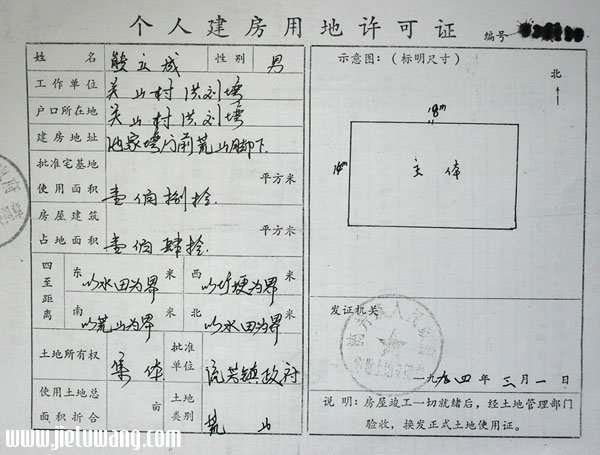 个人建房用地许可证
编号
姓名 熊立成 性别 男
工作单位 关山村洪刘塆
户口所在地 关山村洪刘塆
建房地址 塆门前荒山脚下
批准宅基地使用面积 壹佰捌拾 平方米
房屋建筑占地面积 壹佰肆拾 平方米
四至距离
东 以水田为界 米 西 以圩埂为界 米
南 以荒山为界 米 北 以水田为界 米
土地所有权 集体 批准单位 镇政府
使用土地总面积折合 亩 土地类别 荒山
示意图：（标明尺寸）
北
18m
14m
主体
发证机关
一九九四年三月一日
说明：房屋竣工一切就绪后，经土地管理部门
验收，换发正式土地使用证。
www.jietuwang.com